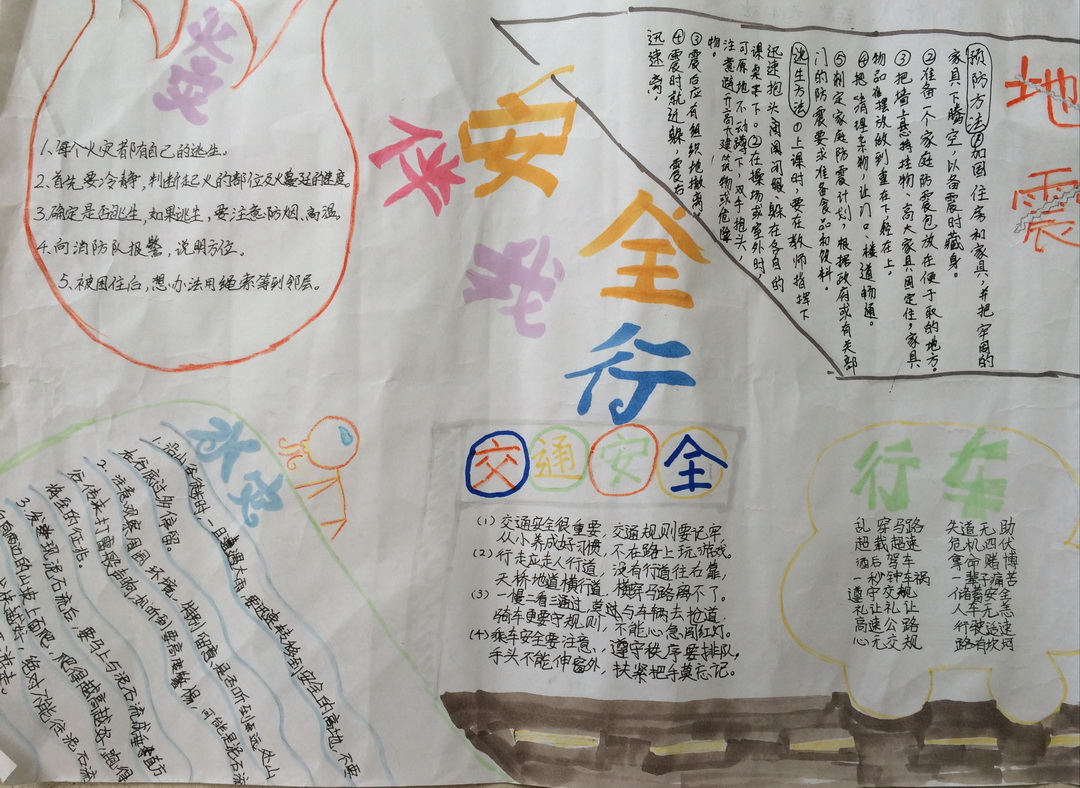 火灾
1、每个火灾都有自己的逃生。
2、首先要冷静,判断起火的部位及火蔓延的速度。
3、确定是否逃生,如果逃生,要注意防烟、高温。
4、向消防队报警,说明方位。
5、被困住后,想办法用绳索等到邻层。
伴
我
安
全
行
地震
预防方法①加固住房和家具,并把牢固的
家具下腾空,以备震时藏身。
②准备一个家庭防震包放在便于取的地方。
③把墙上悬挂物、高大家具固定住,家具
物品准摆放做到重在下轻在上。
④把清理杂物,让门口、楼道畅通。
⑤制定家庭防震计划,根据政府或有关部
门的防震要求准备食品和饮料。
逃生方法①上课时,要在教师指挥下
迅速抱头闭闭眼、躲在各自的
课桌下。②在操场或室外时,
可原地不动蹲下,双手抱头,
注意避开高大建筑物或危险
物。
③震后应有组织地撤离
④震时就近躲,震后
迅速离,
水灾
1、沿山谷徒步时,一旦遭遇大雨,要迅速转移到安全的高地,不要
在谷底过多停留。
2、注意观察周围环境,特别留意是否听到远处山
谷传来打雷般声响,如听到要高度警惕,可能是泥石流
将至的征兆。
3、发现泥石流后,要马上与泥石流成垂直方
向两边的山坡上面爬,爬得越高越好,跑得
越快越好,绝对不能往泥石流
交通安全
(1)交通安全很重要,交通规则要记牢
从小养成好习惯,不在路上玩游戏。
(2)行走应走人行道,没有行道往右靠,
天桥地道横行道,横穿马路离不了。
(3)一慢二看三通过,莫与车辆去抢道,
骑车更要守规则,不能心急闯红灯。
(4)乘车安全要注意,遵守秩序要排队,
手头不能伸窗外,扶紧把手莫忘记。
行车
乱穿马路 失道无助
超载超速 危机四伏
酒后驾车 拿命赌博
一秒钟车祸 一辈子痛苦
遵守交规 储蓄安全
礼让礼让 人车无恙
高速公路 行驶适速
心无交规 路有坎坷